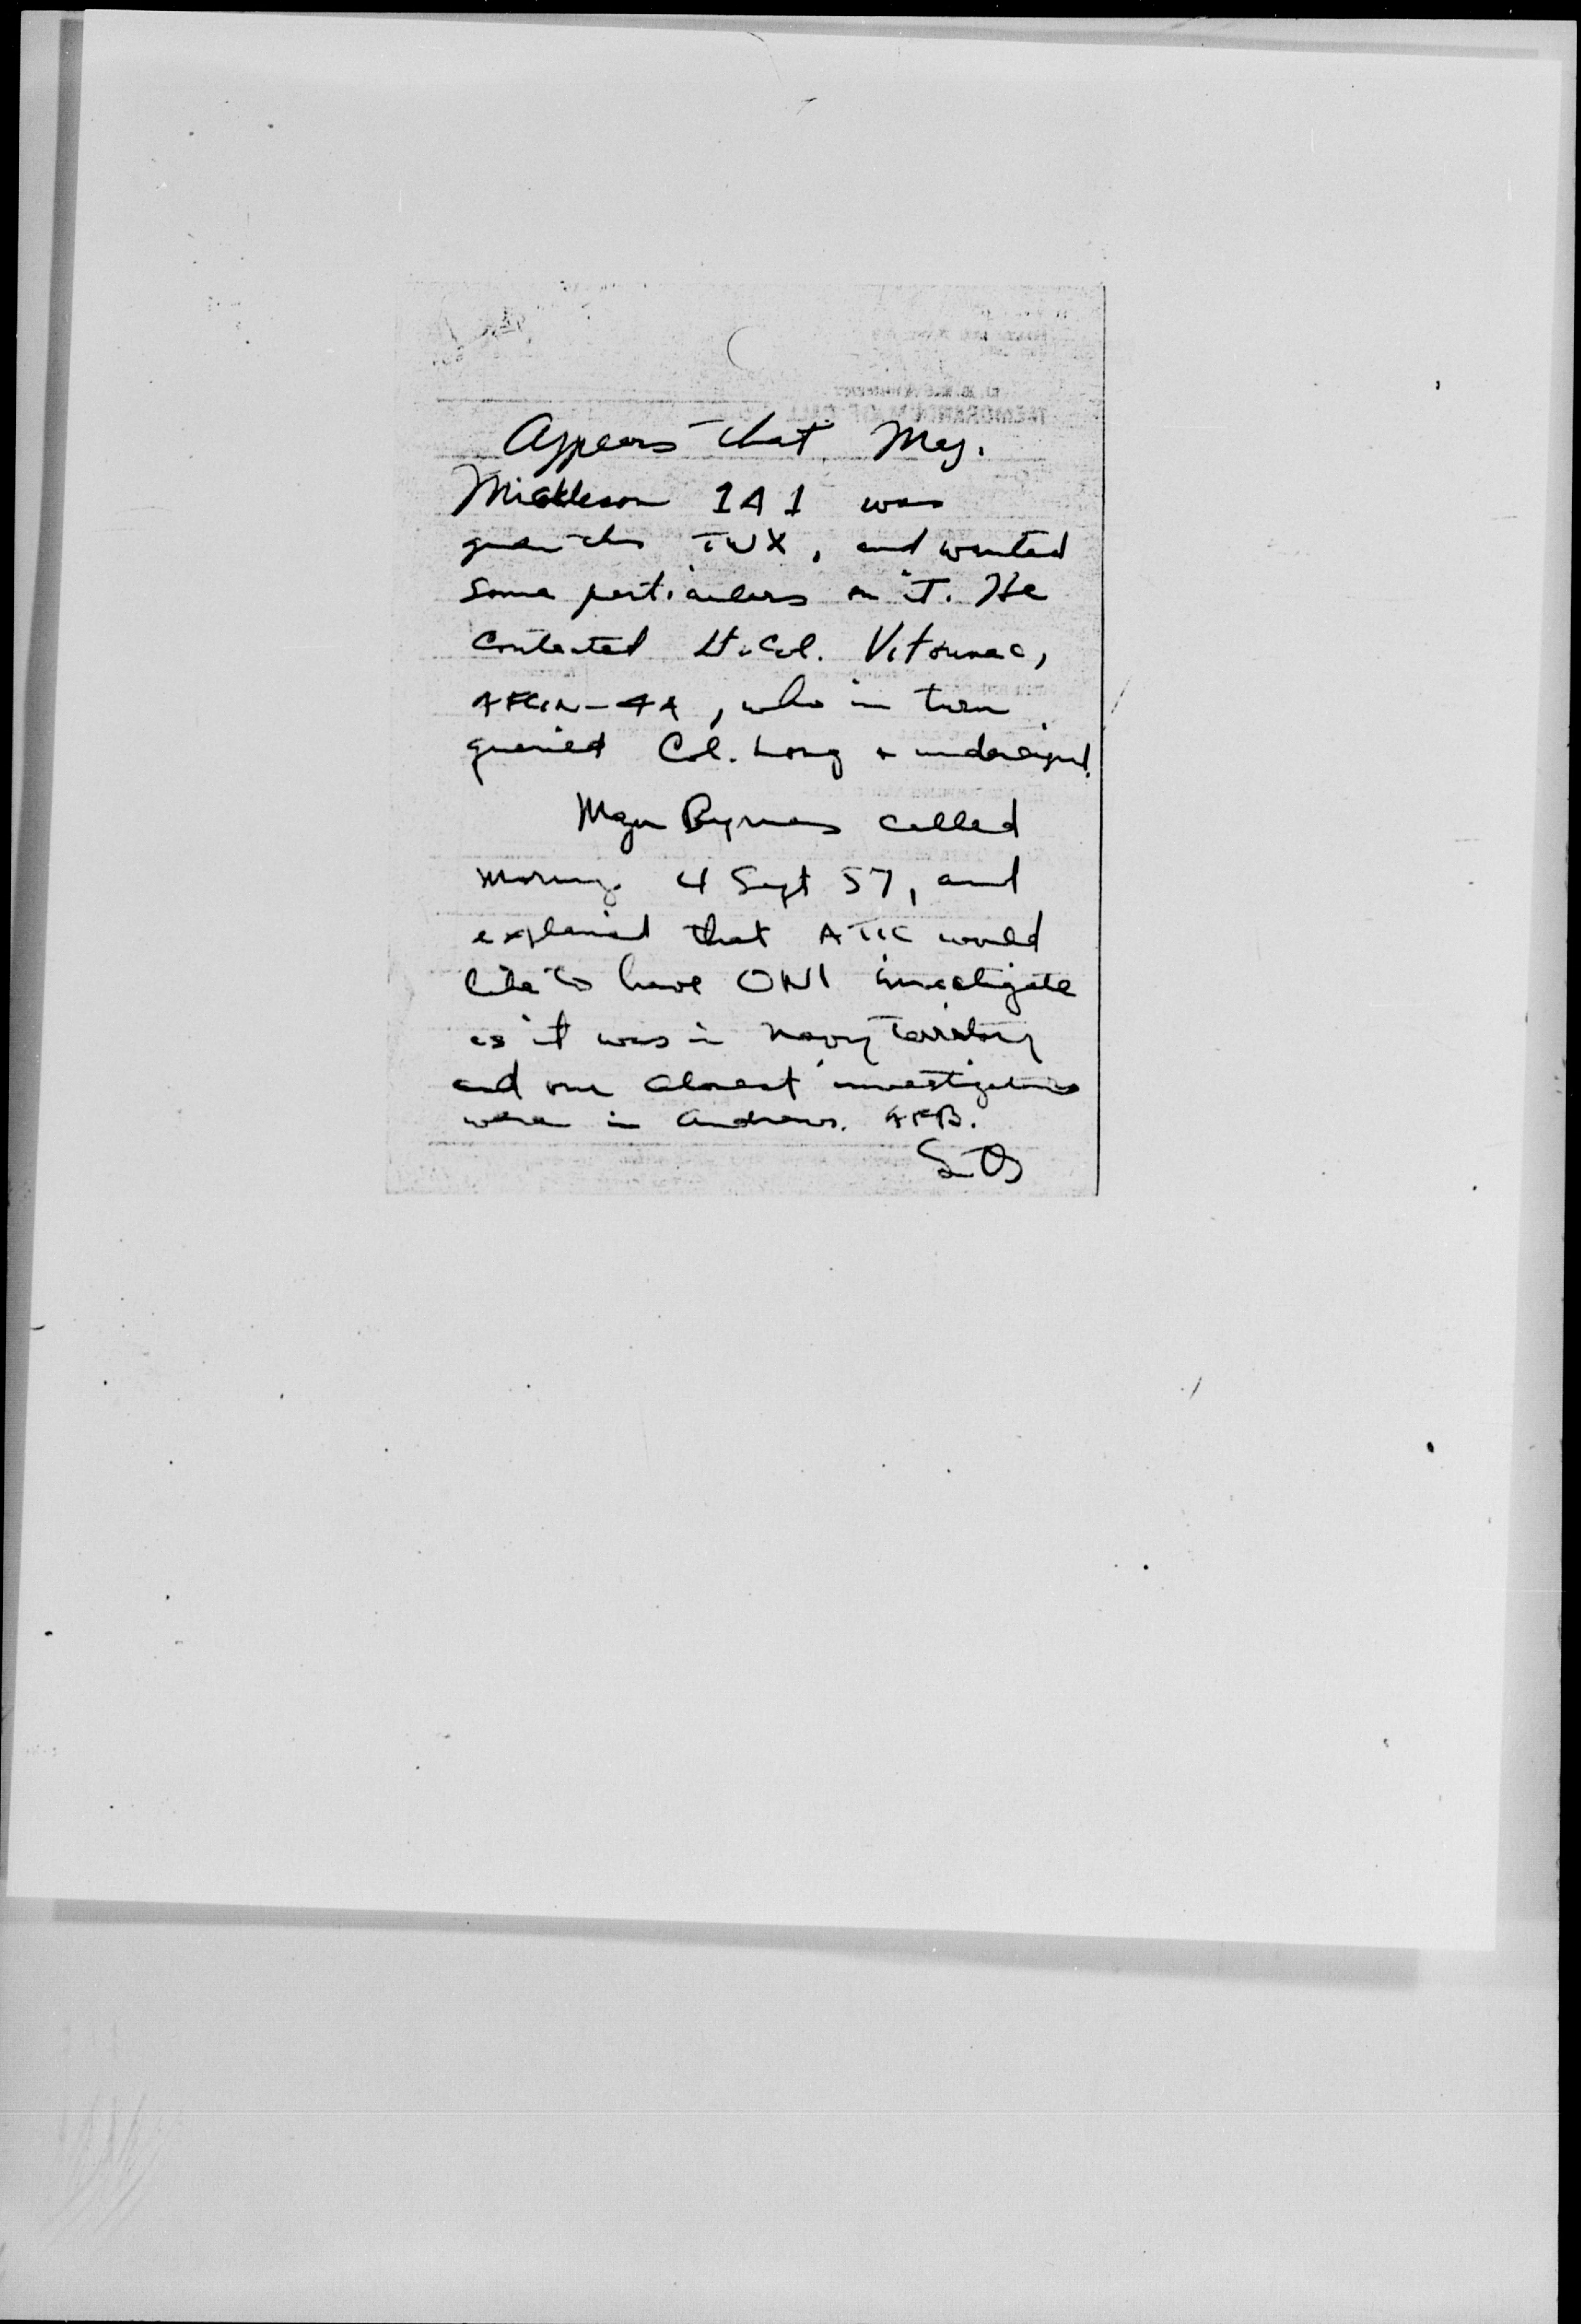 Appears that Maj.
Mickleson 1A1 was
given this TWX, and wanted
some particulars on it. He
contacted Lt. Col. Vitounac,
AFCIN-4A, who in turn
queried Col. Long + undersigned.
Major Byrnes called
morning 4 Sept 57, and
explained that ATIC would
like to have ONI investigate
as it was in Navy territory
and our closest investigators
were in Andrews. AFB.
MEMORANDUM OF CALL